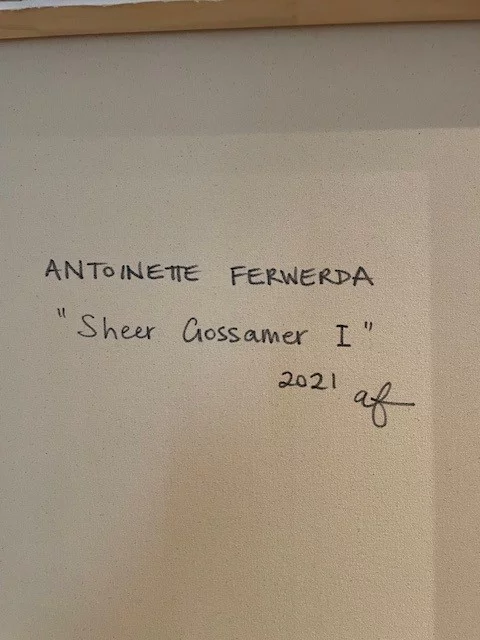 ANTOINETTE FERWERDA
"Sheer Gossamer I"
2021 af